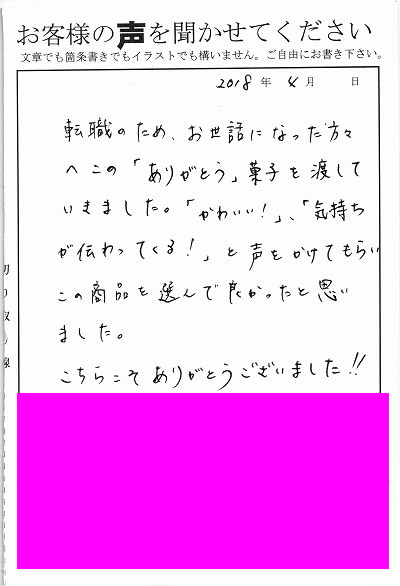 お客様の声を聞かせてください
文章でも箇条書きでもイラストでも構いません。ご自由にお書き下さい。
2018 年 4 月 日
転職のため、お世話になった方々
へこの「ありがとう」菓子を渡して
いきました。「かわいい!」、「気持ち
が伝わってくる!」と声をかけてもらい
この商品を選んで良かったと思い
ました。
こちらこそありがとうございました!!
切り取り線